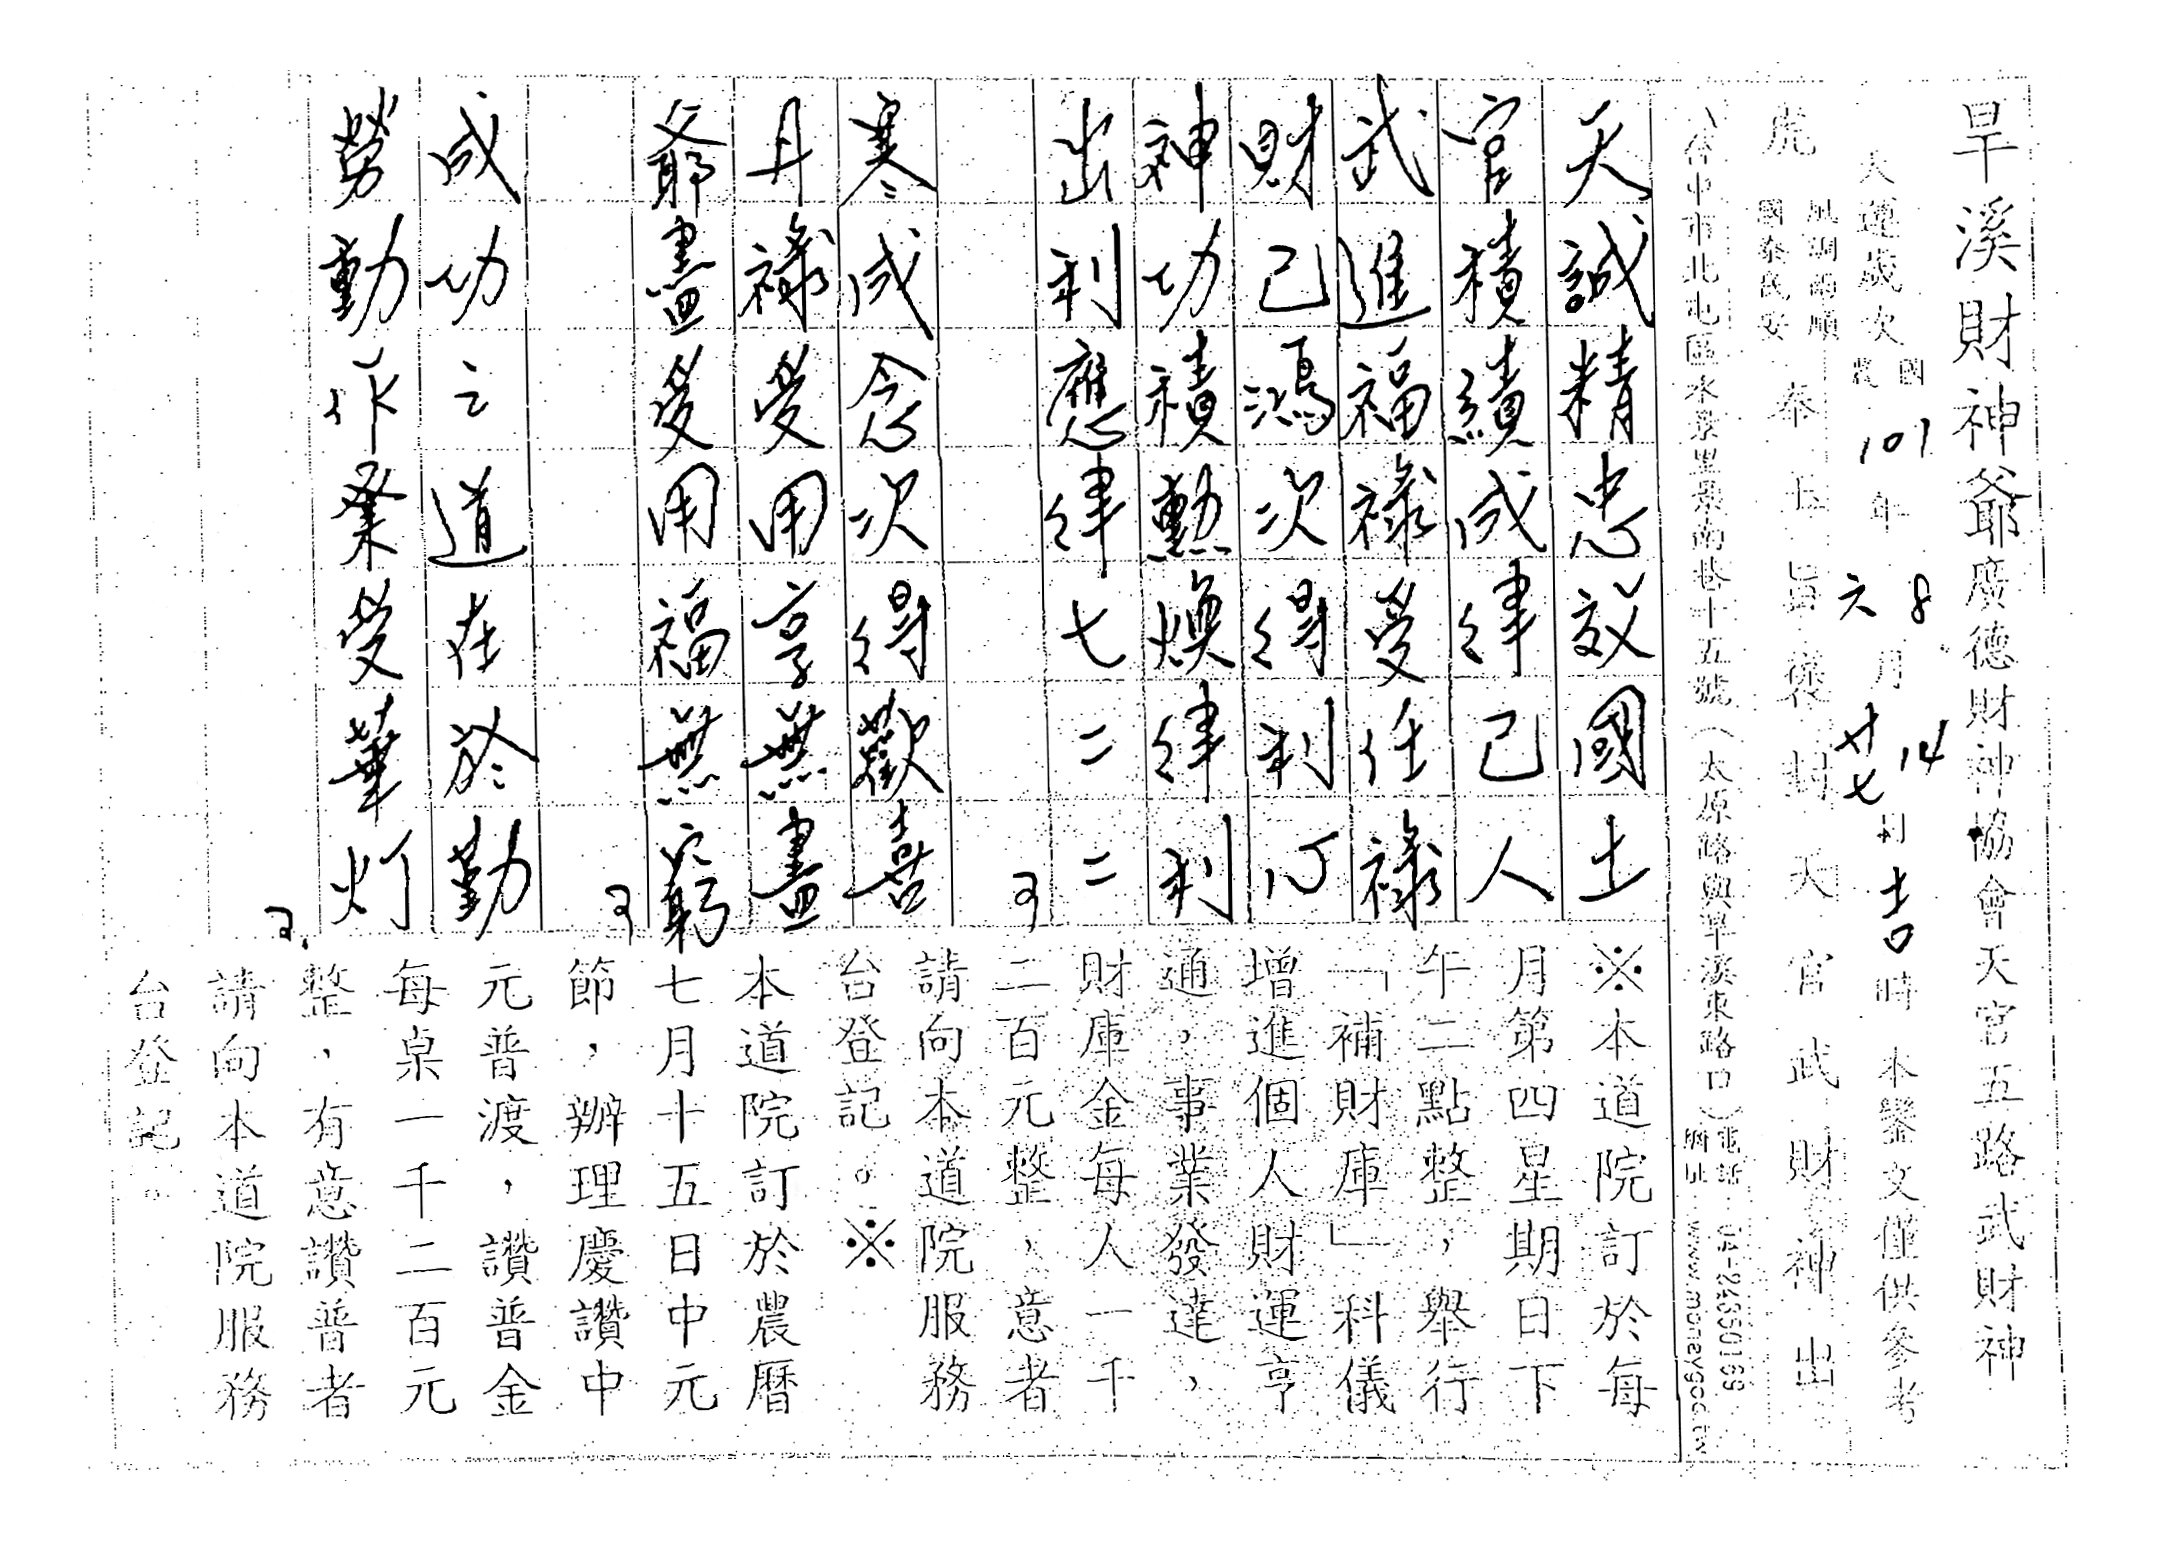 旱溪財神爺廣德財神協會天官五路武財神
天運歲次 國 101 年 8 月 14 日 吉時 本鑒文僅供參考
農 六 廿七
虎 風調雨順 奉 玉 旨 褒 封 天 官 武 財 神 出
國泰民安
台中市北屯區水景里景南巷十五號(太原路與旱溪東路口) 電話 04-24350168
網址 www.moneygod.tw
天誠精忠效國土
官積績成律己人
武進福祿受任祿
財己鴻次得利心
神功積勳煥律利
出利應律七二二
寒成念次得歡喜
丹祿受用享無盡
爺盡受用福無窮
成功之道在於勤
勞動作業受華灯
※本道院訂於每
月第四星期日下
午二點整,舉行
「補財庫」科儀
增進個人財運亨
通,事業發達,
財庫金每人一千
二百元整、意者
請向本道院服務
台登記。※
本道院訂於農曆
七月十五日中元
節,辦理慶讚中
元普渡,讚普金
每桌一千二百元
整,有意讚普者
請向本道院服務
台登記。